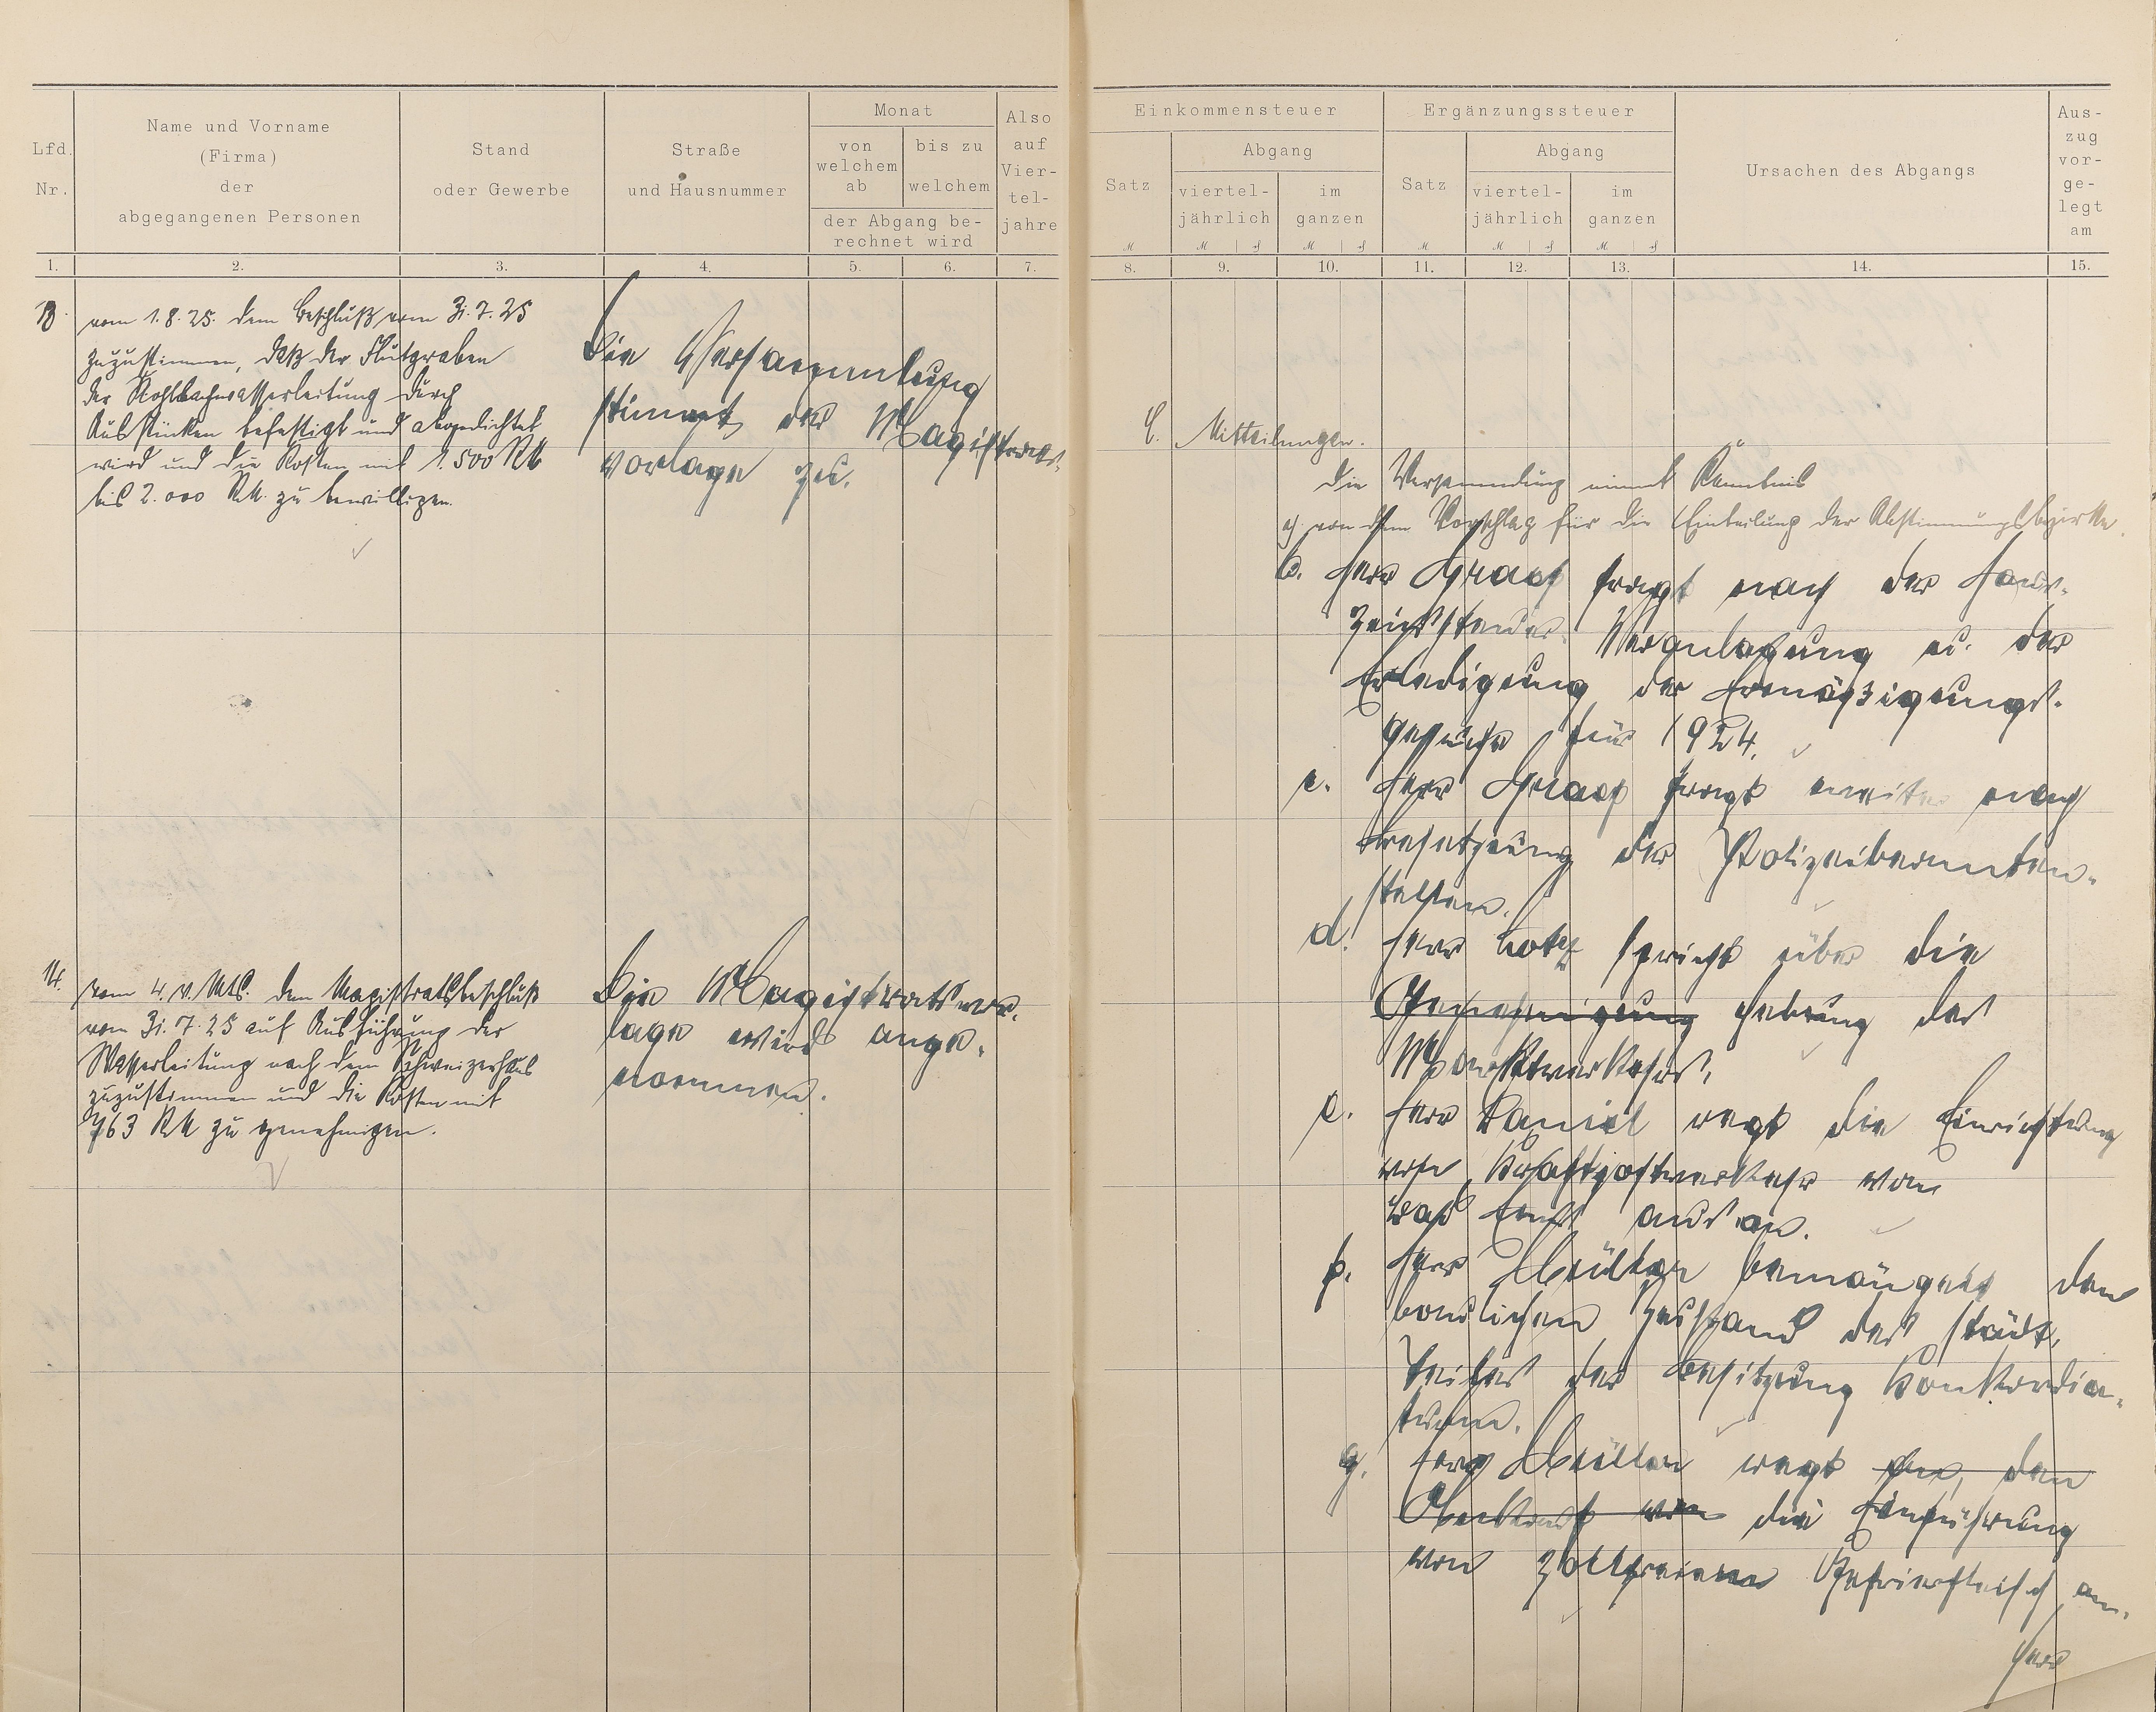 Lfd. Nr.
Name und Vorname
(Firma)
der
abgegangenen Personen
Stand
oder Gewerbe
Straße
und Hausnummer
Monat
von
welchem
ab
bis zu
welchem
der Abgang be-
rechnet wird
Also
auf
Vier-
tel-
jahre
Einkommensteuer
Satz
Abgang
viertel-
jährlich
im
ganzen
Ergänzungssteuer
Satz
Abgang
viertel-
jährlich
im
ganzen
Ursachen des Abgangs
Aus-
zug
vor-
ge-
legt
am
1. 2. 3. 4. 5. 6. 7. 8. 9. 10. 11. 12. 13. 14. 15.
13 vom 1.8.25. dem Beschluß vom 31.7.25
zuzustimmen, daß der Flutgraben
der Kohlbachwasserleitung durch
befestigt und abgedichtet
wird und die Kosten mit 1.500 RM
bis 2.000 RM. zu bewilligen.
Die Versammlung
stimmt der Magistrats-
vorlage zu.
14. vom 4. v. Mts. dem Magistratsbeschluß
vom 31.7.25 auf Ausführung der
Wasserleitung nach dem Schweizerhaus
zuzustimmen und die Kosten mit
763 RM zu genehmigen.
Die Magistratsvor-
lage wird ange-
nommen.
C. Mitteilungen.
Die Versammlung nimmt Kenntnis
a) von dem Vorschlag für die Einteilung der Abstimmungsbezirke.
b. Herr Graaf fragt nach der Haus-
zinssteuer Veranlagung u. der
Erledigung der Ermäßigungs-
gesuche für 1924.
c. Herr Graaf fragt weiter nach
Besetzung der Polizeibeamten-
stellen.
d. Herr spricht über die
Genehmigung Hebung des
Marktverkehrs.
e. Herr Daniel regt die Einrichtung
von Kraftpostverkehr von
Bad Ems aus an.
f. Herr Müller bemängelt den
baulichen Zustand des städt.
Teiles der Besitzung Konkordia-
turm.
g. Herr Müller regt den
die Einführung
von zollfreiem Gefrierfleisch an.
Herr